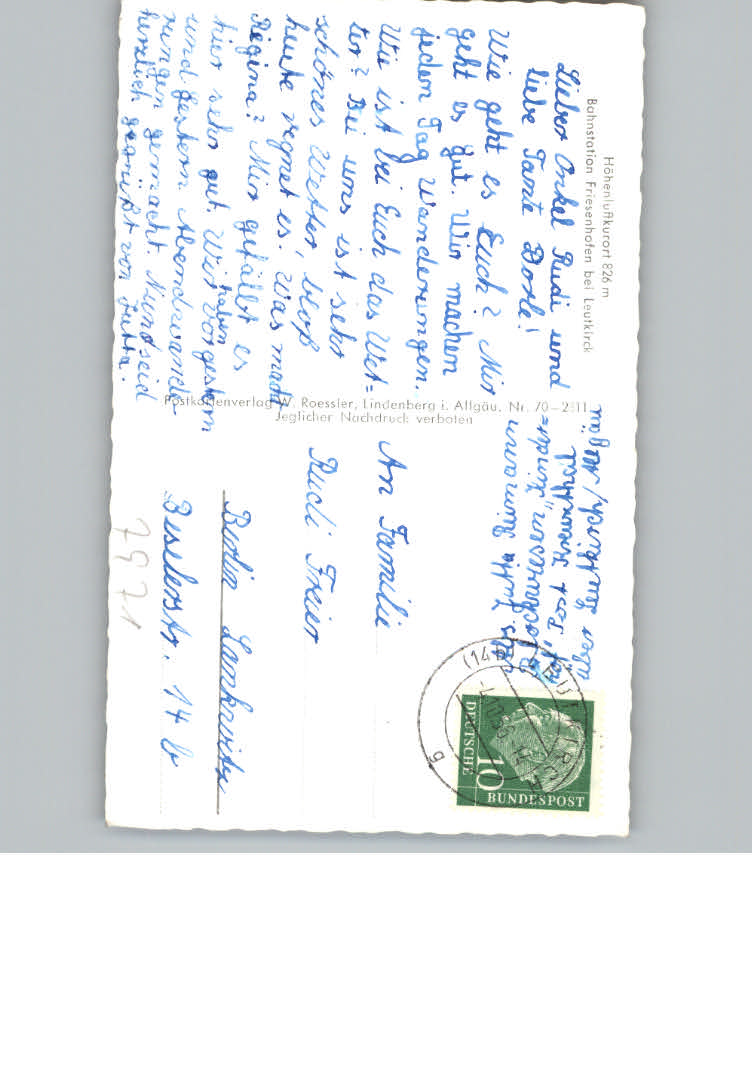 Höhenluftkurort 826 m
Bahnstation Friesenhofen bei Leutkirch
Lieber Onkel Rudi und
liebe Tante Dorle!
Wie geht es Euch? Mir
geht es gut. Wir machen
jeden Tag Wanderungen.
Wie ist bei Euch das Wet=
ter? Bei uns ist sehr
schönes Wetter, bloß
heute regnet es. Was macht
Regina? Mir gefällt es
hier sehr gut. Wir haben vorgestern
und gestern Abendwande-
rungen gemacht. Nun seid
herzlich gegrüßt von Jutta.
Postkartenverlag W. Roessler, Lindenberg i. Allgäu. Nr. 70-2511
Jeglicher Nachdruck verboten
Abs. Jutta
An Familie
Rudi Freier
Berlin Lankwitz
Beselerstr. 14 b
7971
DEUTSCHE
BUNDESPOST
10
(14b)
b